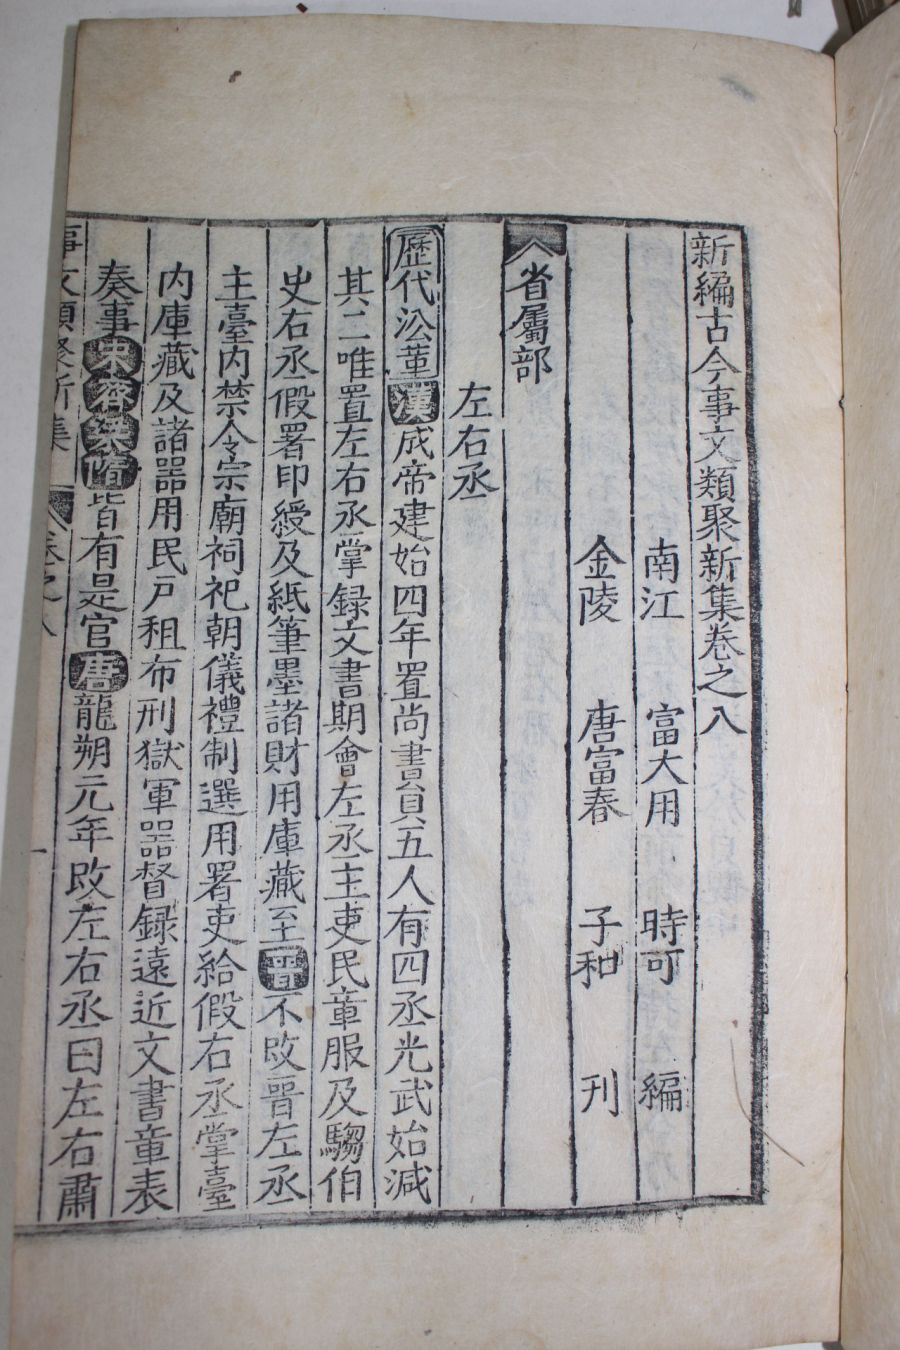 新編古今事文類聚新集卷之八
南江 富大用 時可 編
金陵 唐富春 子和 刋
省屬部
左右丞
歷代沿革漢成帝建始四年置尚書員五人有四丞光武始減
其二唯置左右丞掌録文書期會左丞主吏民章服及騶伯
史右丞假署印綬及紙筆墨諸財用庫藏至晉不改晉左丞
主臺内禁令宗廟祠祀朝儀禮制選用署吏給假右丞掌臺
内庫藏及諸器用民戸租布刑獄軍器督録遠近文書章表
奏事宋齊梁隋皆有是官唐龍朔元年改左右丞曰左右肅
事文類聚新集 卷之八 一